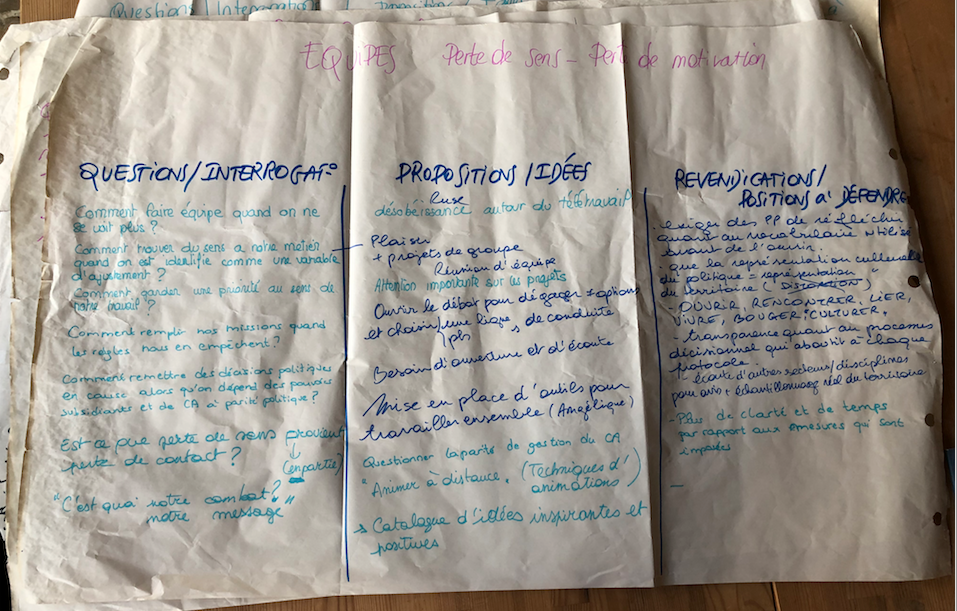 Questions / Interrogation
EQUIPES Perte de sens - Perte de motivation
QUESTIONS/INTERROGAT°
Comment faire équipe quand on ne
se voit plus ?
Comment trouver du sens a notre métier
quand on est identifié comme une variable
d'ajustement ?
Comment garder une priorité au sens de
notre travail ?
Comment remplir nos missions quand
les règles nous en empêchent ?
Comment remettre des décisions politiques
en cause alors qu'on dépend des pouvoirs
subsidiants et de CA à parité politique ?
Est ce que perte de sens provient
perte de contact ?
(en partie)
"C'est quoi notre combat ?
notre message"
PROPOSITIONS/IDÉES
Ruse
désobéissance autour du télétravail
Plaisir
+ projets de groupe
Réunion d'équipe
Attention importante sur les projets
Ouvrir le débat pour dégager options
et choisir/une ligne, de conduite
pts
Besoin d'ouverture et d'écoute
Mise en place d'outils pour
travailler ensemble (Angélique)
Questionner la parité de gestion du CA
"Animer à distance" (Techniques d'
animations)
→ Catalogue d'idées inspirantes et
positives
REVENDICATIONS/
POSITIONS A' DÉFENDRE
- exiger des PP de réfléchir
quant au vocabulaire utilisé
avant de l'ouvrir.
- que la représentation culturelle
du politique = représentation
du territoire ("DISTORTION")
- OUVRIR, RENCONTRER, LIER,
VIVRE, BOUGER, CULTURER,
- transparence quant au processus
décisionnel qui aboutit à chaque
protocole
- écoute d'autres secteurs/disciplines
pour avis + échantillonnage réel du territoire
- Plus de clarté et de temps
par rapport aux mesures qui sont
imposées
-